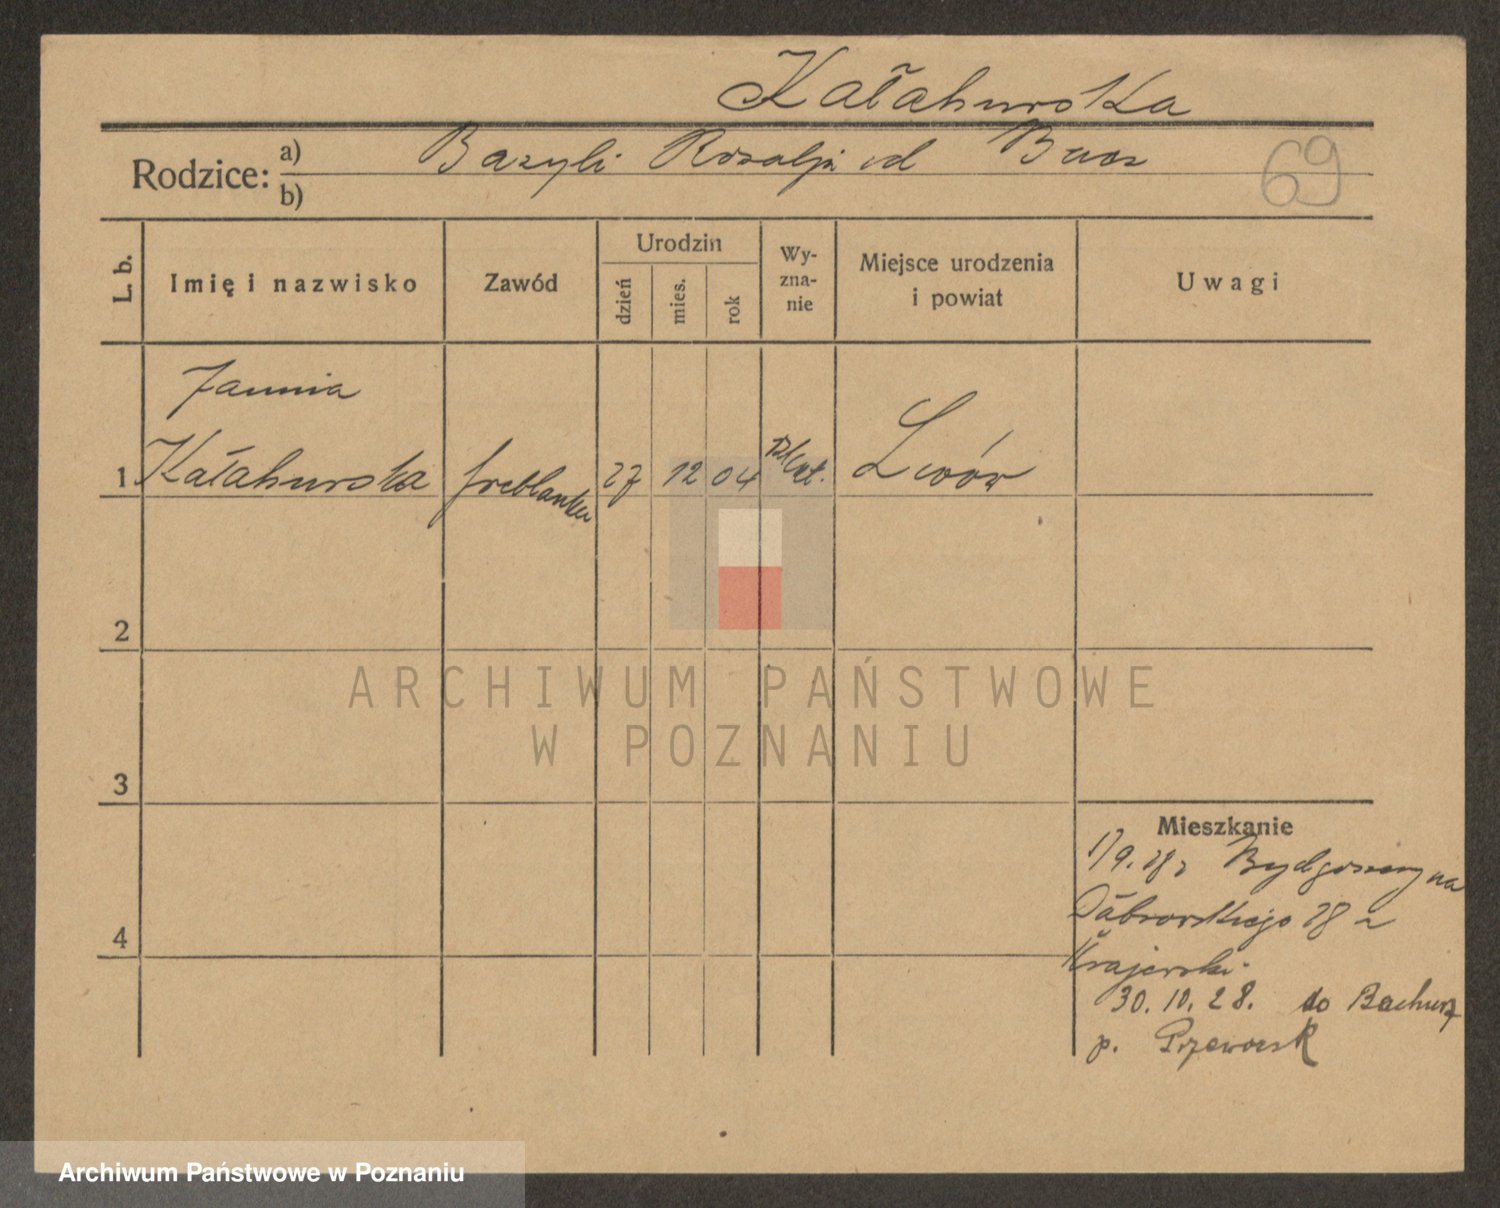 Kałahurska
Rodzice: a) b) Bazyli Rozalja
69
L. b.
Imię i nazwisko
Zawód
Urodzin
dzień
mies.
rok
Wy-
zna-
nie
Miejsce urodzenia
i powiat
Uwagi
Janina
1 Kałahurska freblanka 27 12 04 Lwów
2
3
4
Mieszkanie
Bydgoszczy na
Dąbrowskiego 28
Krajerski
30. 10. 28. do Bachurz
p. Przeworsk
ARCHIWUM PAŃSTWOWE
W POZNANIU
Archiwum Państwowe w Poznaniu